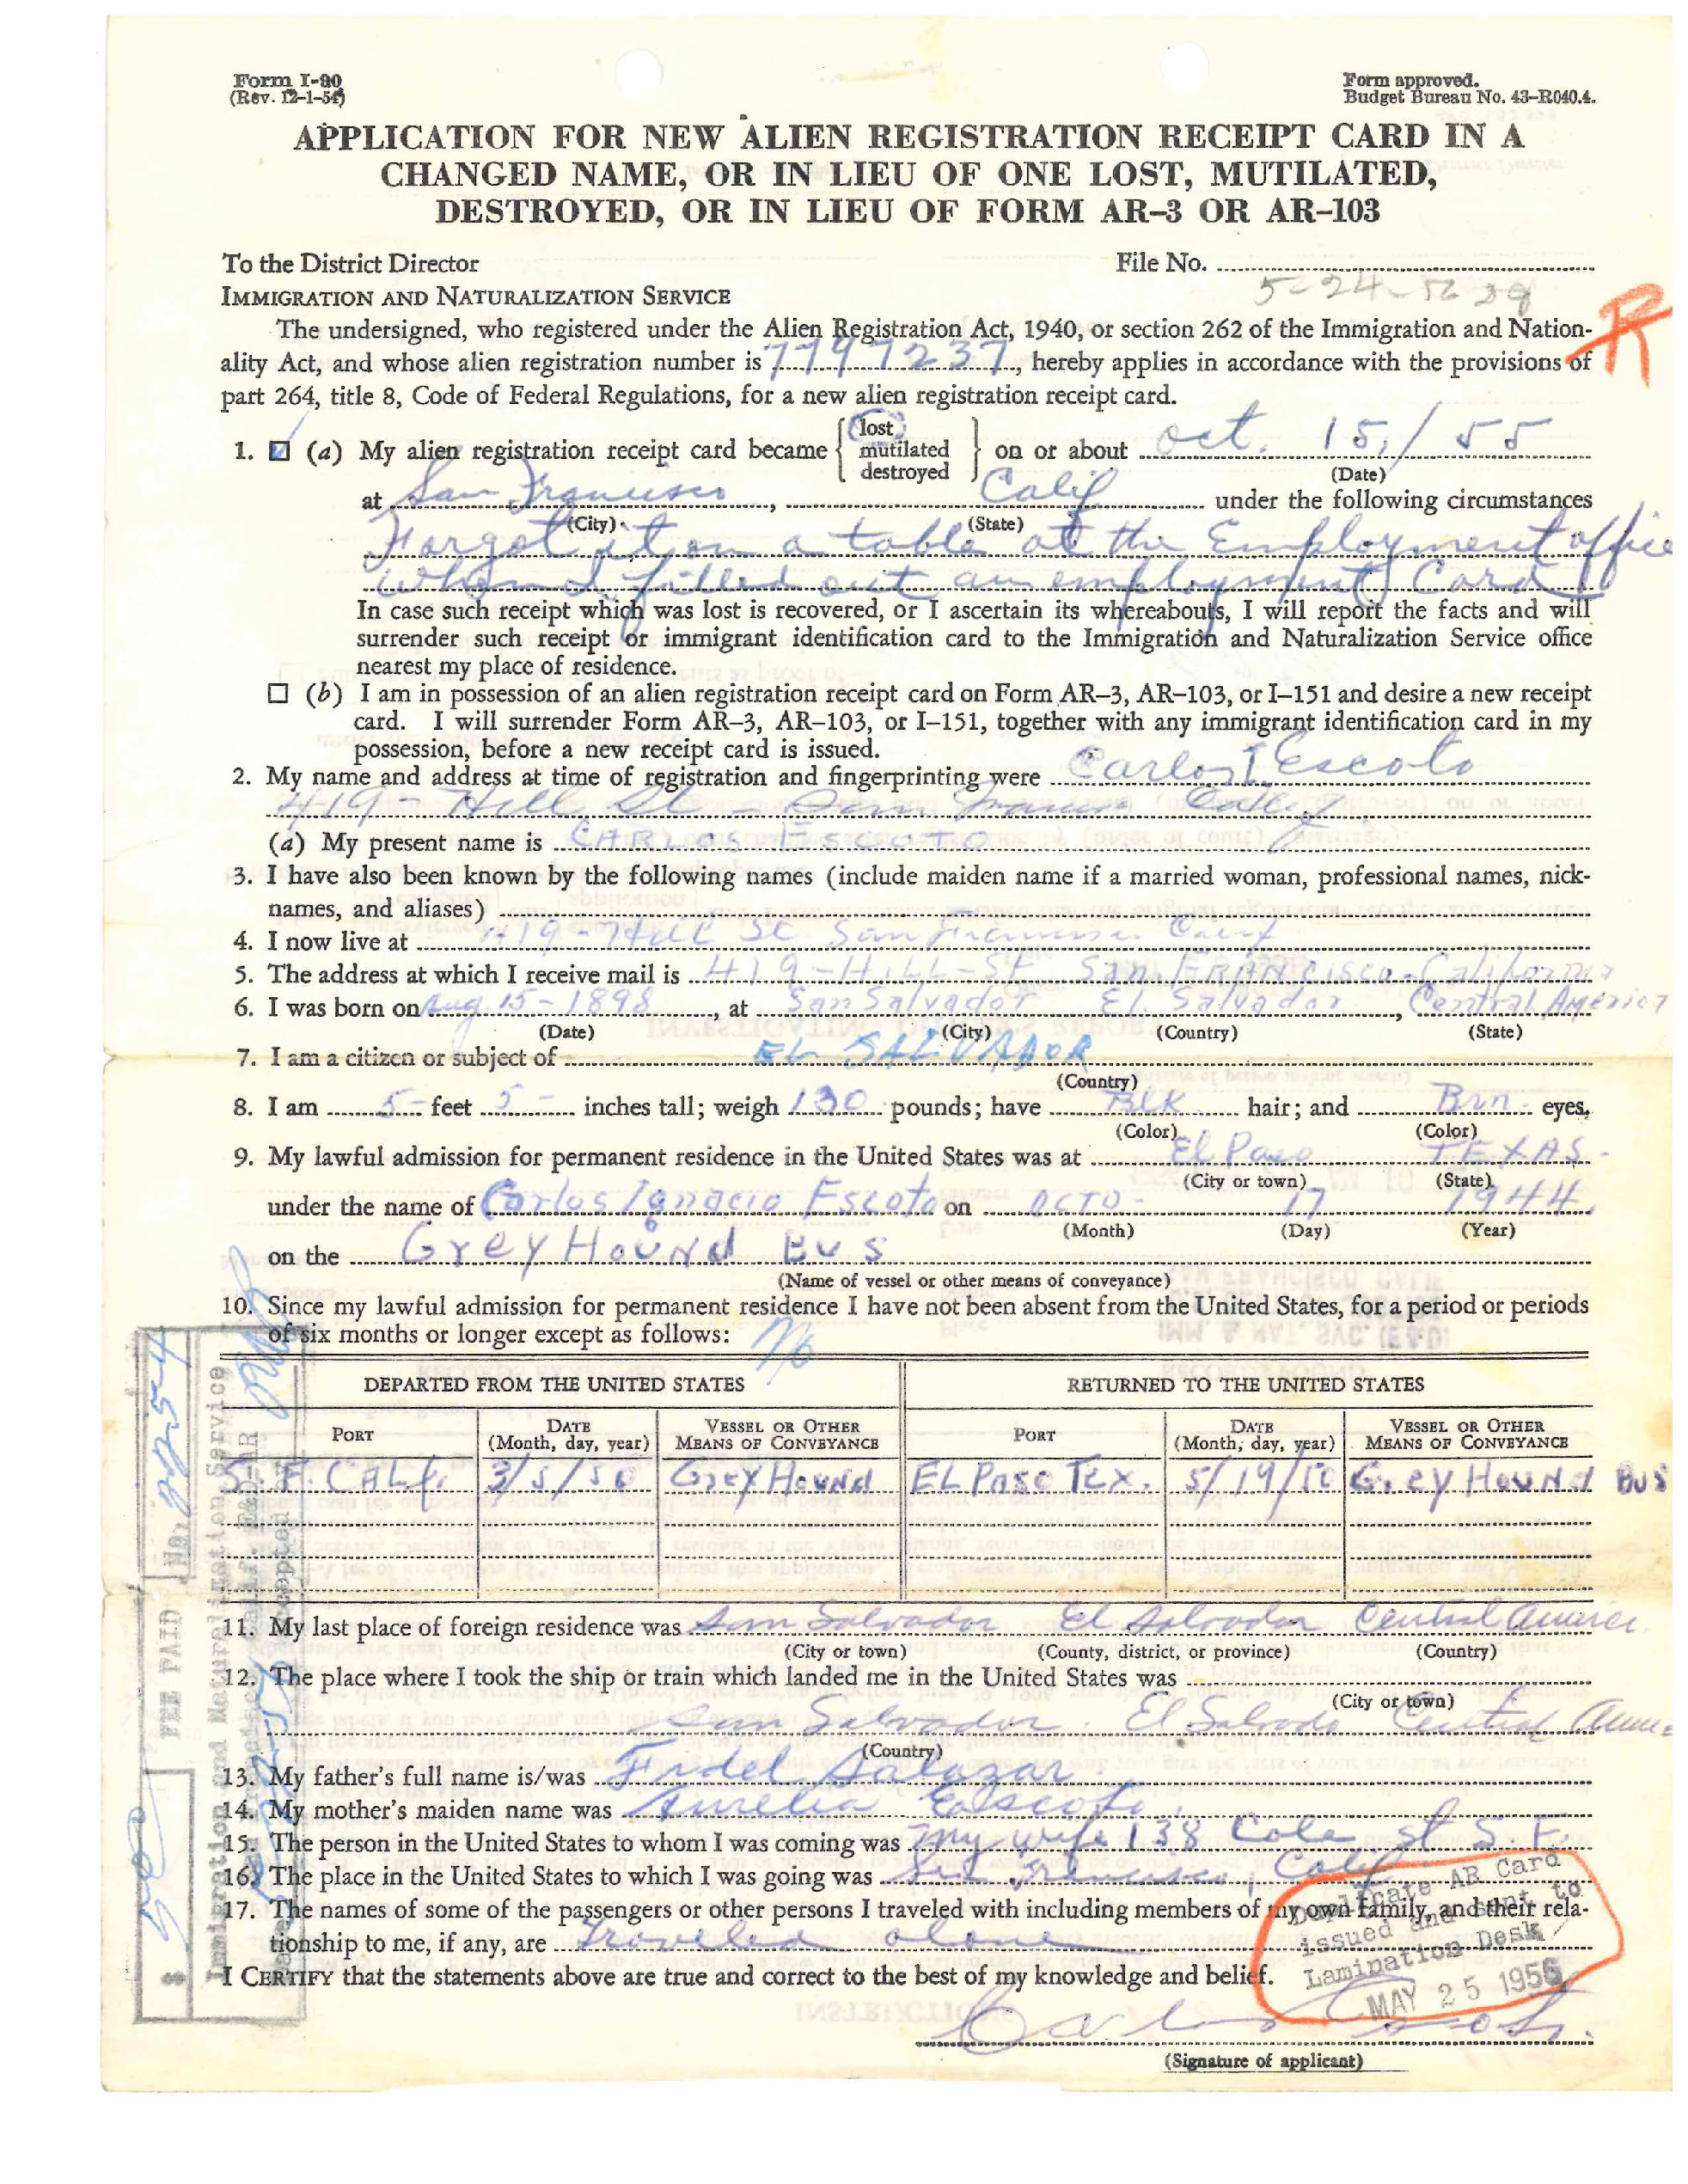 Form I-90
(Rev. 12-1-54)
Form approved.
Budget Bureau No. 43-R040.4.
APPLICATION FOR NEW ALIEN REGISTRATION RECEIPT CARD IN A
CHANGED NAME, OR IN LIEU OF ONE LOST, MUTILATED,
DESTROYED, OR IN LIEU OF FORM AR-3 OR AR-103
To the District Director
File No.
IMMIGRATION AND NATURALIZATION SERVICE
5-24-56
R
The undersigned, who registered under the Alien Registration Act, 1940, or section 262 of the Immigration and Nation-
ality Act, and whose alien registration number is 7747237, hereby applies in accordance with the provisions of
part 264, title 8, Code of Federal Regulations, for a new alien registration receipt card.
1. (a) My alien registration receipt card became { lost mutilated destroyed } on or about oct. 15,/55
(Date)
at San Francisco, Calif under the following circumstances
(City) (State)
Forgot it on a table at the Employment office
when I filled out an employment Card
In case such receipt which was lost is recovered, or I ascertain its whereabouts, I will report the facts and will
surrender such receipt or immigrant identification card to the Immigration and Naturalization Service office
nearest my place of residence.
(b) I am in possession of an alien registration receipt card on Form AR-3, AR-103, or I-151 and desire a new receipt
card. I will surrender Form AR-3, AR-103, or I-151, together with any immigrant identification card in my
possession, before a new receipt card is issued.
2. My name and address at time of registration and fingerprinting were Carlos I. Escoto
419 - Hill St - San Francisco Calif.
(a) My present name is CARLOS I ESCOTO
3. I have also been known by the following names (include maiden name if a married woman, professional names, nick-
names, and aliases)
4. I now live at 419 - Hill St San Francisco Calif
5. The address at which I receive mail is 419-HILL-ST SAN FRANCisco-California
6. I was born on Aug. 15-1898, at San Salvador EL Salvador, Central America
(Date) (City) (Country) (State)
7. I am a citizen or subject of EL SALVADOR
(Country)
8. I am 5 feet 5 inches tall; weigh 130 pounds; have BLK hair; and Brn eyes.
(Color) (Color)
9. My lawful admission for permanent residence in the United States was at El Paso TEXAS
(City or town) (State)
under the name of Carlos Ignacio Escoto on OCTO- 17 1944
(Month) (Day) (Year)
on the Grey Hound Bus
(Name of vessel or other means of conveyance)
10. Since my lawful admission for permanent residence I have not been absent from the United States, for a period or periods
of six months or longer except as follows: No
DEPARTED FROM THE UNITED STATES RETURNED TO THE UNITED STATES
PORT DATE (Month, day, year) VESSEL OR OTHER MEANS OF CONVEYANCE PORT DATE (Month, day, year) VESSEL OR OTHER MEANS OF CONVEYANCE
S. F. CALif. 3/5/50 Grey Hound EL PASO TEX. 5/19/50 Grey Hound BUS
11. My last place of foreign residence was San Salvador El Salvador Central Americ
(City or town) (County, district, or province) (Country)
12. The place where I took the ship or train which landed me in the United States was
(City or town)
San Salvador. El Salvado Central Ame
(Country)
13. My father's full name is/was Fidel Salazar
14. My mother's maiden name was Aurelia Escoto.
15. The person in the United States to whom I was coming was my wife 138 Cole st S.F.
16. The place in the United States to which I was going was San Francisco, Calif.
17. The names of some of the passengers or other persons I traveled with including members of my own family, and their rela-
tionship to me, if any, are Traveled alone
I CERTIFY that the statements above are true and correct to the best of my knowledge and belief.
Duplicate AR Card
issued and sent to
Lamination Desk
MAY 25 1956
(Signature of applicant)
FEE PAID No.
Immigration and Naturalization Service
$